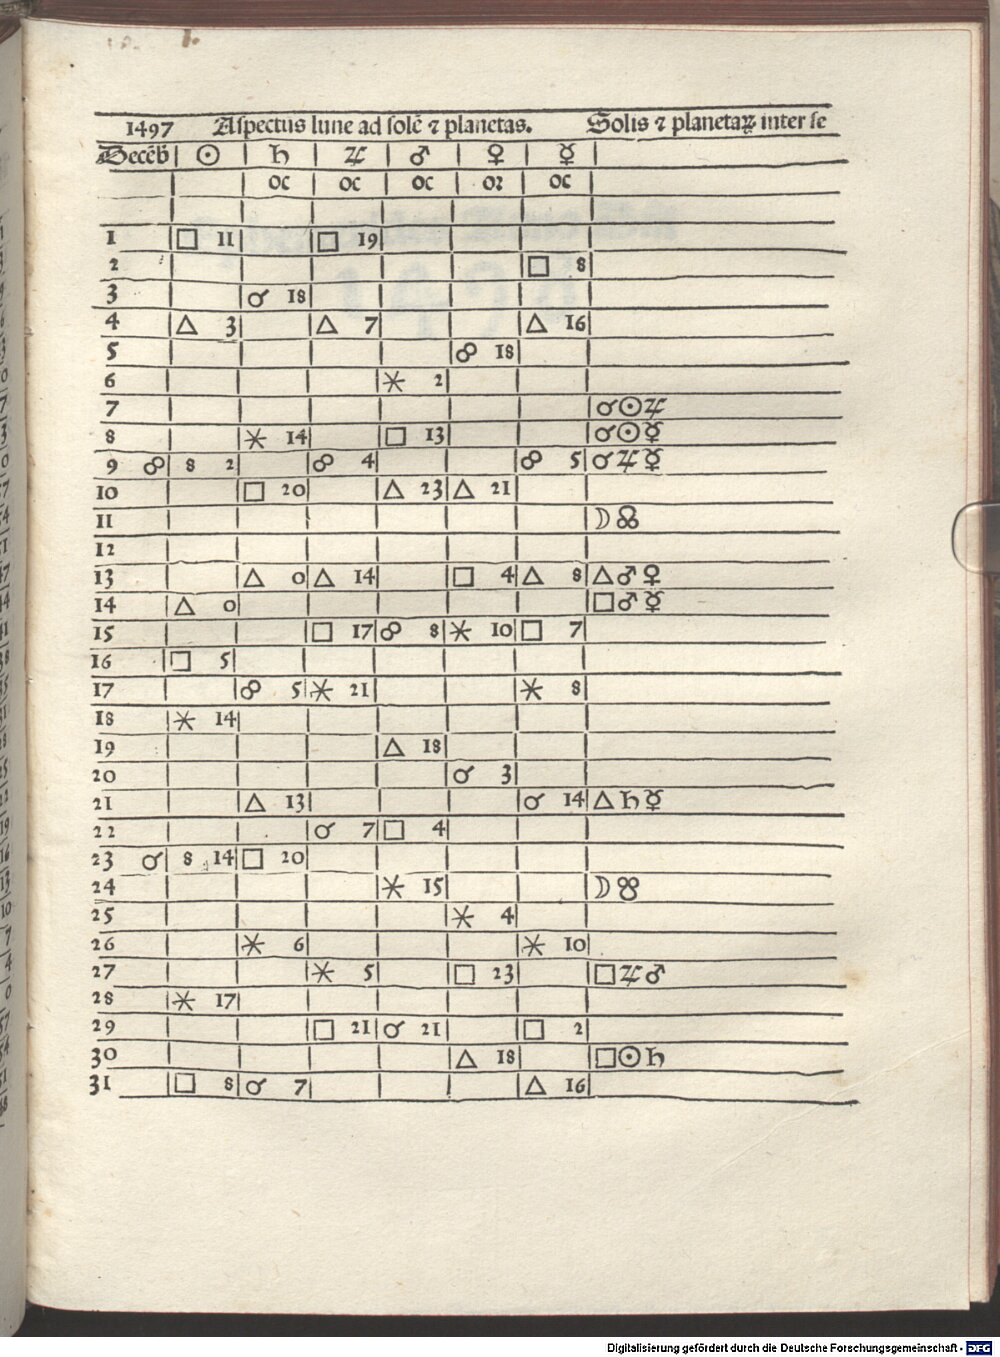 1497 Aspectus lune ad solē ⁊ planetas. Solis ⁊ planetaꝝ inter se
Decēb | ☉ | ♄ | ♃ | ♂ | ♀ | ☿
oc | oc | oc | oꝛ | oc
1 □ 11 □ 19
2 □ 8
3 ☌ 18
4 △ 3 △ 7 △ 16
5 ☍ 18
6 ⚹ 2
7 ☌☉♃
8 ⚹ 14 □ 13 ☌☉☿
9 ☍ 8 2 ☍ 4 ☍ 5 ☌♃☿
10 □ 20 △ 23 △ 21
11 ☽☊
12
13 △ 0 △ 14 □ 4 △ 8 △♂♀
14 △ 0 □♂☿
15 □ 17 ☍ 8 ⚹ 10 □ 7
16 □ 5
17 ☍ 5 ⚹ 21 ⚹ 8
18 ⚹ 14
19 △ 18
20 ☌ 3
21 △ 13 ☌ 14 △♄☿
22 ☌ 7 □ 4
23 ☌ 8 14 □ 20
24 ⚹ 15 ☽☋
25 ⚹ 4
26 ⚹ 6 ⚹ 10
27 ⚹ 5 □ 23 □♃♂
28 ⚹ 17
29 □ 21 ☌ 21 □ 2
30 △ 18 □☉♄
31 □ 8 ☌ 7 △ 16
Digitalisierung gefördert durch die Deutsche Forschungsgemeinschaft - DFG